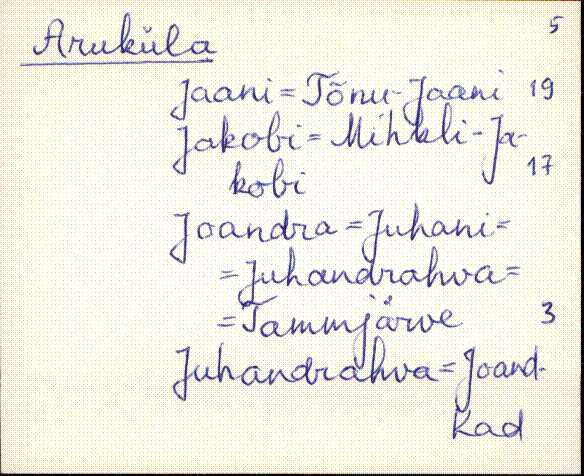 5
Aruküla
Jaani = Tõnu-Jaani 19
Jakobi = Mihkli-Ja-
kobi 17
Joandra = Juhani =
= Juhandrahva =
= Tammjärve 3
Juhandrahva = Joand-